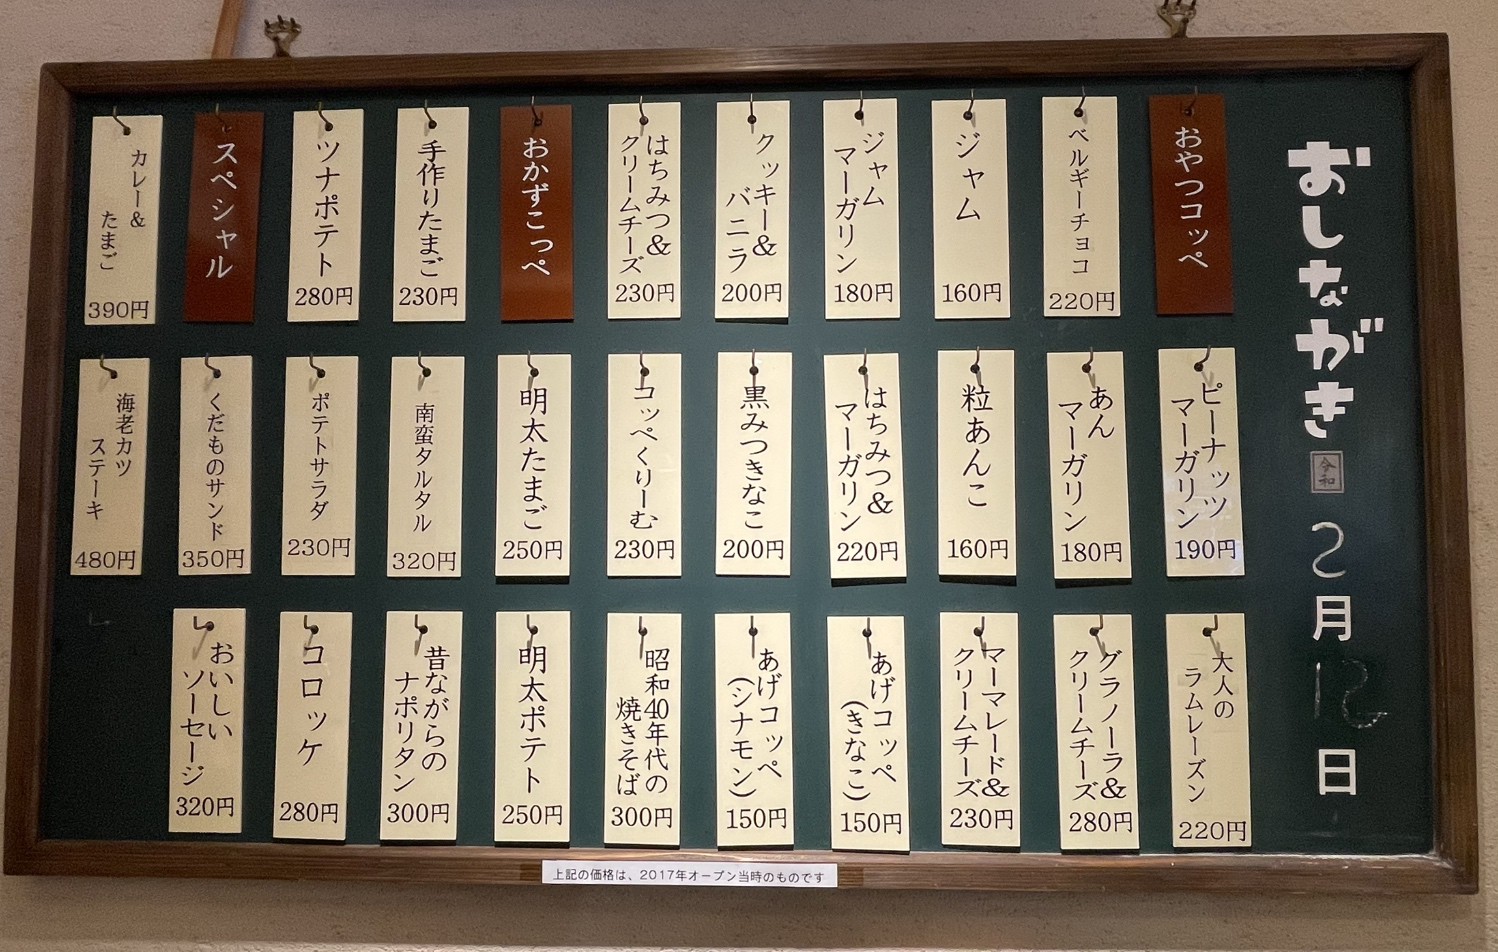 おしながき
令和
2月12日
おやつコッペ
ベルギーチョコ
220円
ジャム
160円
ジャム
マーガリン
180円
クッキー&
バニラ
200円
はちみつ&
クリームチーズ
230円
おかずこっぺ
手作りたまご
230円
ツナポテト
280円
スペシャル
カレー&
たまご
390円
ピーナッツ
マーガリン
190円
あん
マーガリン
180円
粒あんこ
160円
はちみつ&
マーガリン
220円
黒みつきなこ
200円
コッペくりーむ
230円
明太たまご
250円
南蛮タルタル
320円
ポテトサラダ
230円
くだものサンド
350円
海老カツ
ステーキ
480円
大人の
ラムレーズン
220円
グラノーラ&
クリームチーズ
280円
マーマレード&
クリームチーズ
230円
あげコッペ
(きなこ)
150円
あげコッペ
(シナモン)
150円
昭和40年代の
焼きそば
300円
明太ポテト
250円
昔ながらの
ナポリタン
300円
コロッケ
280円
おいしい
ソーセージ
320円
上記の価格は、2017年オープン当時のものです